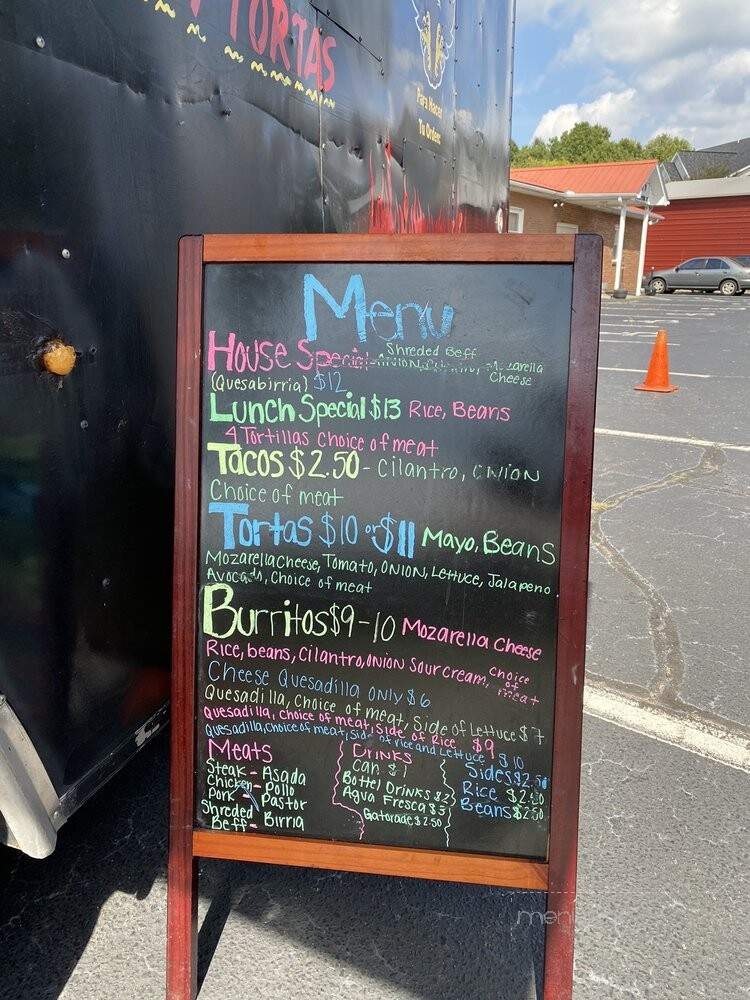 TORTAS
Para Hacer
Tu Orden
Menu
House Special - Shreded Beff
ONION, Mozarella
Cheese
(Quesabirria) $12
Lunch Special $13 Rice, Beans
4 Tortillas Choice of meat
Tacos $2.50 - Cilantro, ONION
Choice of meat
Tortas $10 or $11 Mayo, Beans
Mozarella cheese, Tomato, ONION, Lettuce, Jalapeno
Avocado, Choice of meat
Burritos $9-10 Mozarella Cheese
Rice, beans, cilantro, ONION Sour cream, Choice
of
meat
Cheese Quesadilla only $6
Quesadilla, Choice of meat, Side of Lettuce $7
Quesadilla, Choice of meat, Side of Rice $9
Quesadilla, choice of meat, side of rice and Lettuce $10
Meats
Steak - Asada
Chicken - Pollo
Pork - Pastor
Shreded
Beff - Birria
Drinks
Can $1
Bottel Drinks $2
Agua Fresca $3
Gatorade $2.50
Sides $2.50
Rice $2.50
Beans $2.50